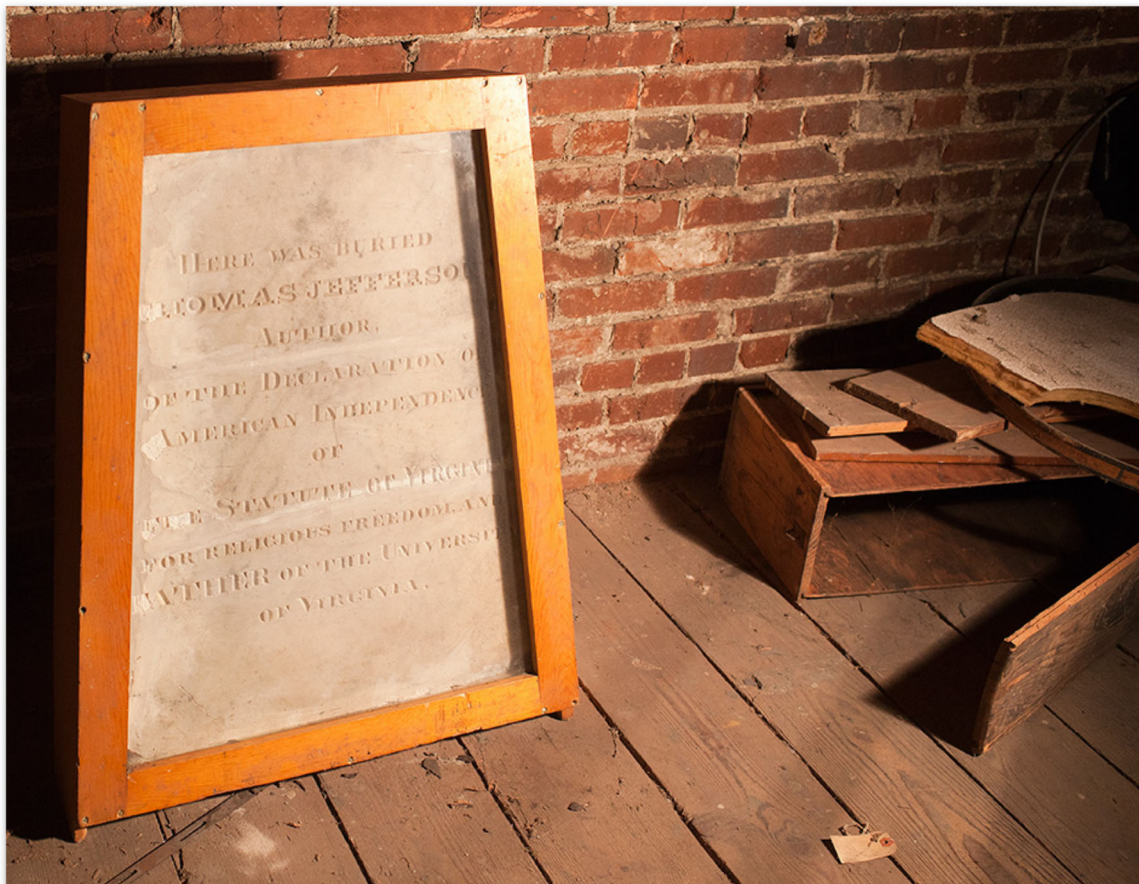 HERE WAS BURIED
THOMAS JEFFERSON
AUTHOR,
OF THE DECLARATION OF
AMERICAN INDEPENDENCE
OF
THE STATUTE OF VIRGINIA
FOR RELIGIOUS FREEDOM, AND
FATHER OF THE UNIVERSITY
OF VIRGINIA.